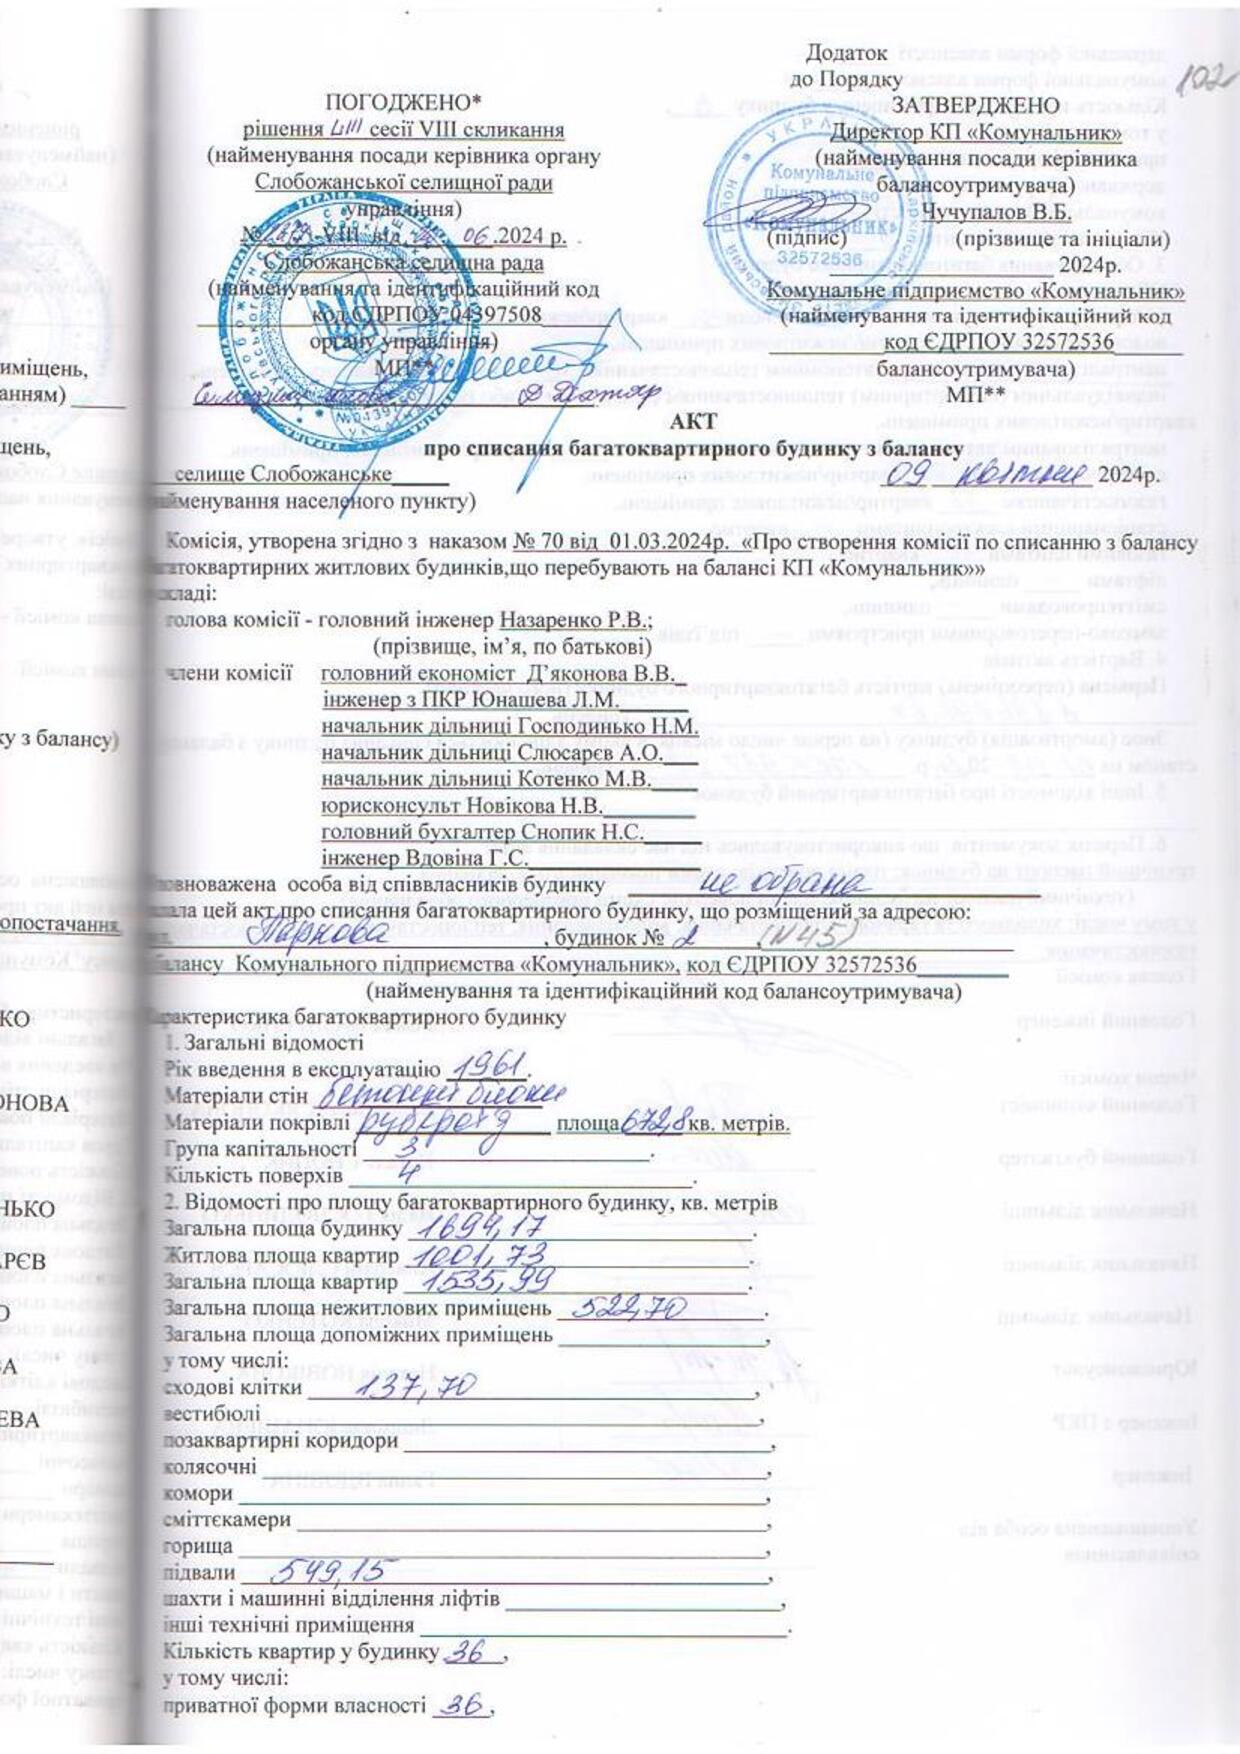 102
Додаток
до Порядку
ПОГОДЖЕНО*
рішення LIII сесії VIII скликання
(найменування посади керівника органу
Слобожанської селищної ради
управління)
VIII від 06.2024 р.
Слобожанська селищна рада
(найменування та ідентифікаційний код
код ЄДРПОУ 04397508
органу управління)
МП**
ЗАТВЕРДЖЕНО
Директор КП «Комунальник»
(найменування посади керівника
балансоутримувача)
Чучупалов В.Б.
(підпис) (прізвище та ініціали)
2024р.
Комунальне підприємство «Комунальник»
(найменування та ідентифікаційний код
код ЄДРПОУ 32572536
балансоутримувача)
МП**
УКРАЇНА
Комунальне
підприємство
«Комунальник»
32572536
АКТ
про списання багатоквартирного будинку з балансу
селище Слобожанське 09 квітня 2024р.
найменування населеного пункту)
Комісія, утворена згідно з наказом № 70 від 01.03.2024р. «Про створення комісії по списанню з балансу
багатоквартирних житлових будинків,що перебувають на балансі КП «Комунальник»»
складі:
голова комісії - головний інженер Назаренко Р.В.;
(прізвище, ім’я, по батькові)
члени комісії головний економіст Д’яконова В.В.
інженер з ПКР Юнашева Л.М.
начальник дільниці Господинько Н.М.
начальник дільниці Слюсарєв А.О.
начальник дільниці Котенко М.В.
юрисконсульт Новікова Н.В.
головний бухгалтер Снопик Н.С.
інженер Вдовіна Г.С.
уповноважена особа від співвласників будинку не обрана
склала цей акт про списання багатоквартирного будинку, що розміщений за адресою:
Паркова, будинок № 2 (N45)
балансу Комунального підприємства «Комунальник», код ЄДРПОУ 32572536
(найменування та ідентифікаційний код балансоутримувача)
Характеристика багатоквартирного будинку
1. Загальні відомості
Рік введення в експлуатацію 1961.
Матеріали стін бетонні блоки
Матеріали покрівлі рубероїд площа 672,8 кв. метрів.
Група капітальності 3.
Кількість поверхів 4.
2. Відомості про площу багатоквартирного будинку, кв. метрів
Загальна площа будинку 1699,17.
Житлова площа квартир 1001,73.
Загальна площа квартир 1535,99.
Загальна площа нежитлових приміщень 522,70.
Загальна площа допоміжних приміщень,
у тому числі:
сходові клітки 137,70,
вестибюлі,
позаквартирні коридори,
колясочні,
комори,
сміттєкамери,
горища,
підвали 549,15,
шахти і машинні відділення ліфтів,
інші технічні приміщення.
Кількість квартир у будинку 36,
у тому числі:
приватної форми власності 36,
иміщень,
анням)
щень,
ку з балансу)
опостачання,
КО
ОНОВА
НЬКО
АРЄВ
О
ВА
ЕВА